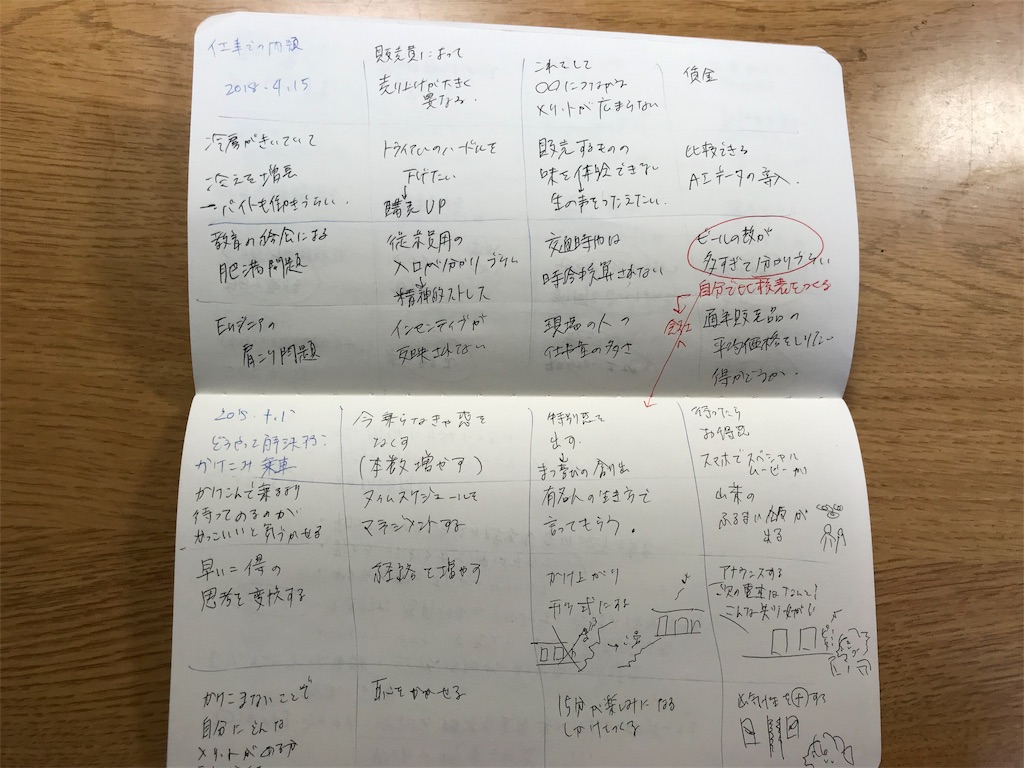 仕事での問題
2018.4.15
販売員によって
売り上げが大きく
異なる.
これをして
〇〇につながる
メリットが広まらない
賃金
冷房がきいていて
冷えを増長
トライアルのハードルを
下げたい
↓
購売UP
販売するものの
味を体験できない
生の声をつたえたい.
比較できる
AIデータの導入.
教育の
肥満問題
従業員用の
入口が分かりづらい
↓
精神的ストレス
交通時間は
時給換算されない
ビールの数が
多すぎて分かりづらい
自分で比較表をつくる
会社へ
エンジニアの
肩こり問題
インセンティブが
反映されない
現場の人の
仕事量の多さ
通年販売品の
平均価格をしりたい
得かどうか.
どうやって解決する?
かけこみ乗車
今乗らなきゃ感を
なくす
(本数増やす)
特別感を
出す.
↓
の創出
待ってたら
お得感
スマホでスペシャル
ムービーが
かけこんで乗るより
待ってるのが
かっこいいと思うかせる
タイムスケジュールを
マネジメントする
有名人の生き方で
言ってもらう.
山菜の
ふるまい
出る
早い=得の
思考を変換する
経路を増やす
かけ上がり
式にする
アナウンスする
次の電車はなんと!
かけこまないことで
自分にどんな
メリットがあるか
恥をかかせる
15分が楽しみになる
しかけをつくる
を+する